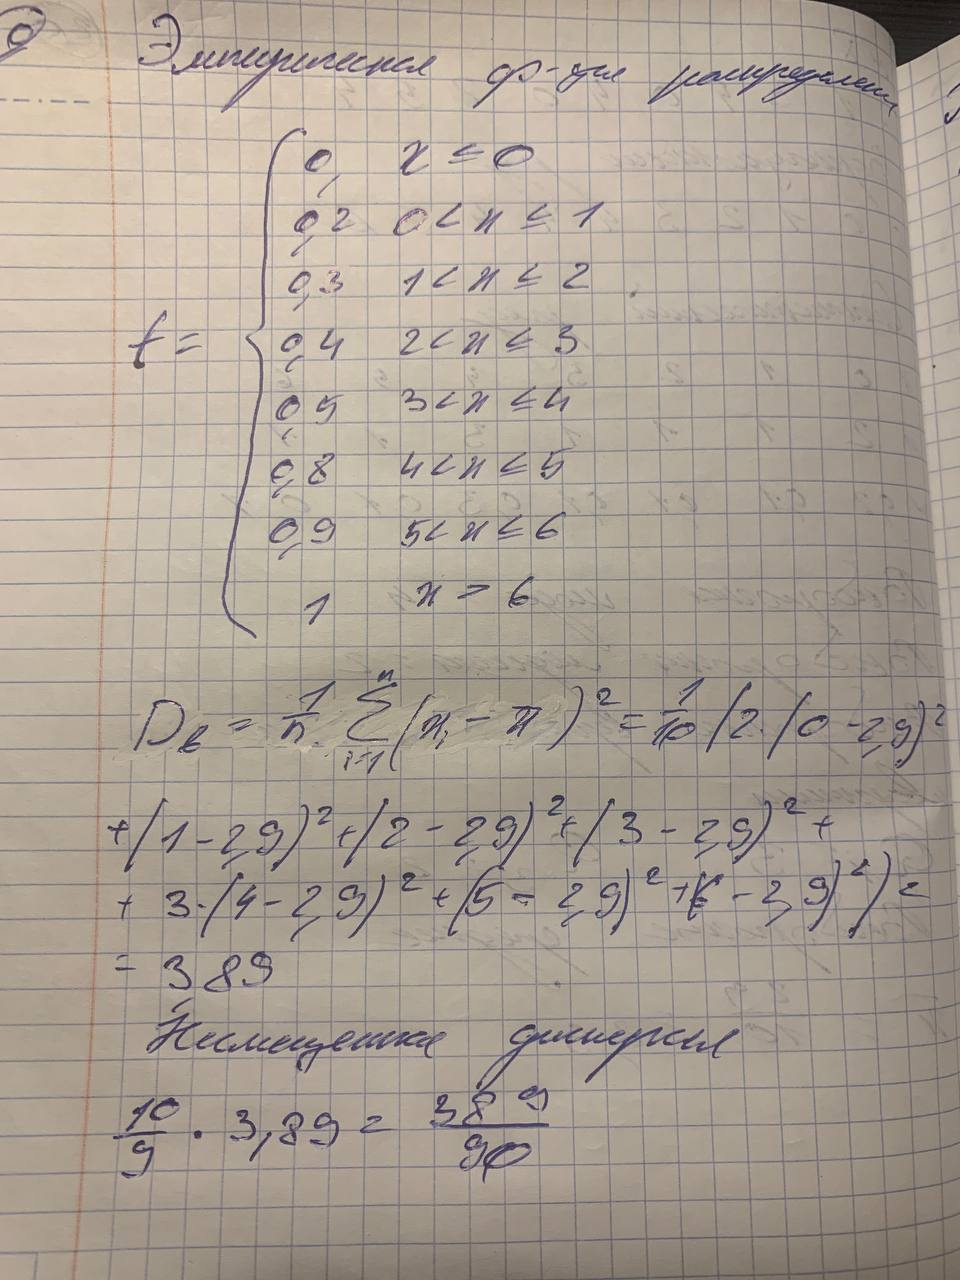 Эмпирическая ф-ция распределен
0, x ≤ 0
0,2 0 < x ≤ 1
0,3 1 < x ≤ 2
f = 0,4 2 < x ≤ 3
0,5 3 < x ≤ 4
0,8 4 < x ≤ 5
0,9 5 < x ≤ 6
1 x > 6
Dв = 1/n ∑ⁿᵢ₌₁ (xᵢ - x̄)² = 1/10 (2·(0 - 2,9)²
+(1 - 2,9)² + (2 - 2,9)² + (3 - 2,9)² +
+ 3·(4 - 2,9)² + (5 - 2,9)² + (6 - 2,9)²) =
= 3,89
Несмещенная дисперсия
10/9 · 3,89 = 389/90